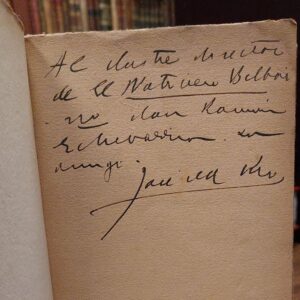 Al ilustre director
de El Noticiero Bilbai
no don Ramón
Echevarria su
amigo
José del Río